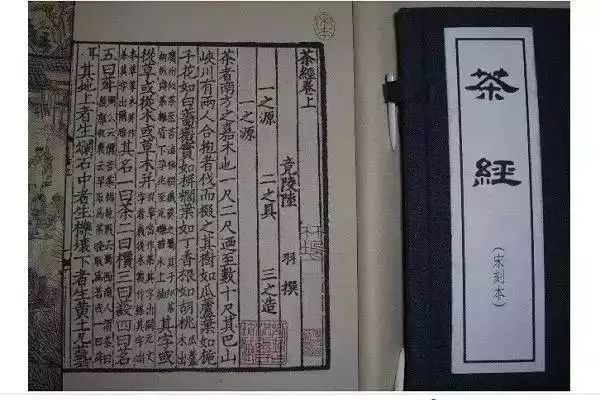 茶經卷上
竟陵陸 羽 撰
一之源 二之具 三之造
一之源
茶者南方之嘉木也一尺二尺迺至數十尺其巴山
峽川有兩人合抱者伐而掇之其樹如瓜蘆葉如梔
子花如白薔薇實如栟櫚葉如丁香根如胡桃
其字或
從草或從木或草木并
其名一曰茶二曰檟三曰蔎四曰茗
五曰荈
其地上者生爛石中者生櫟壤下者生黃土凡藝
茶經
(宋刻本)